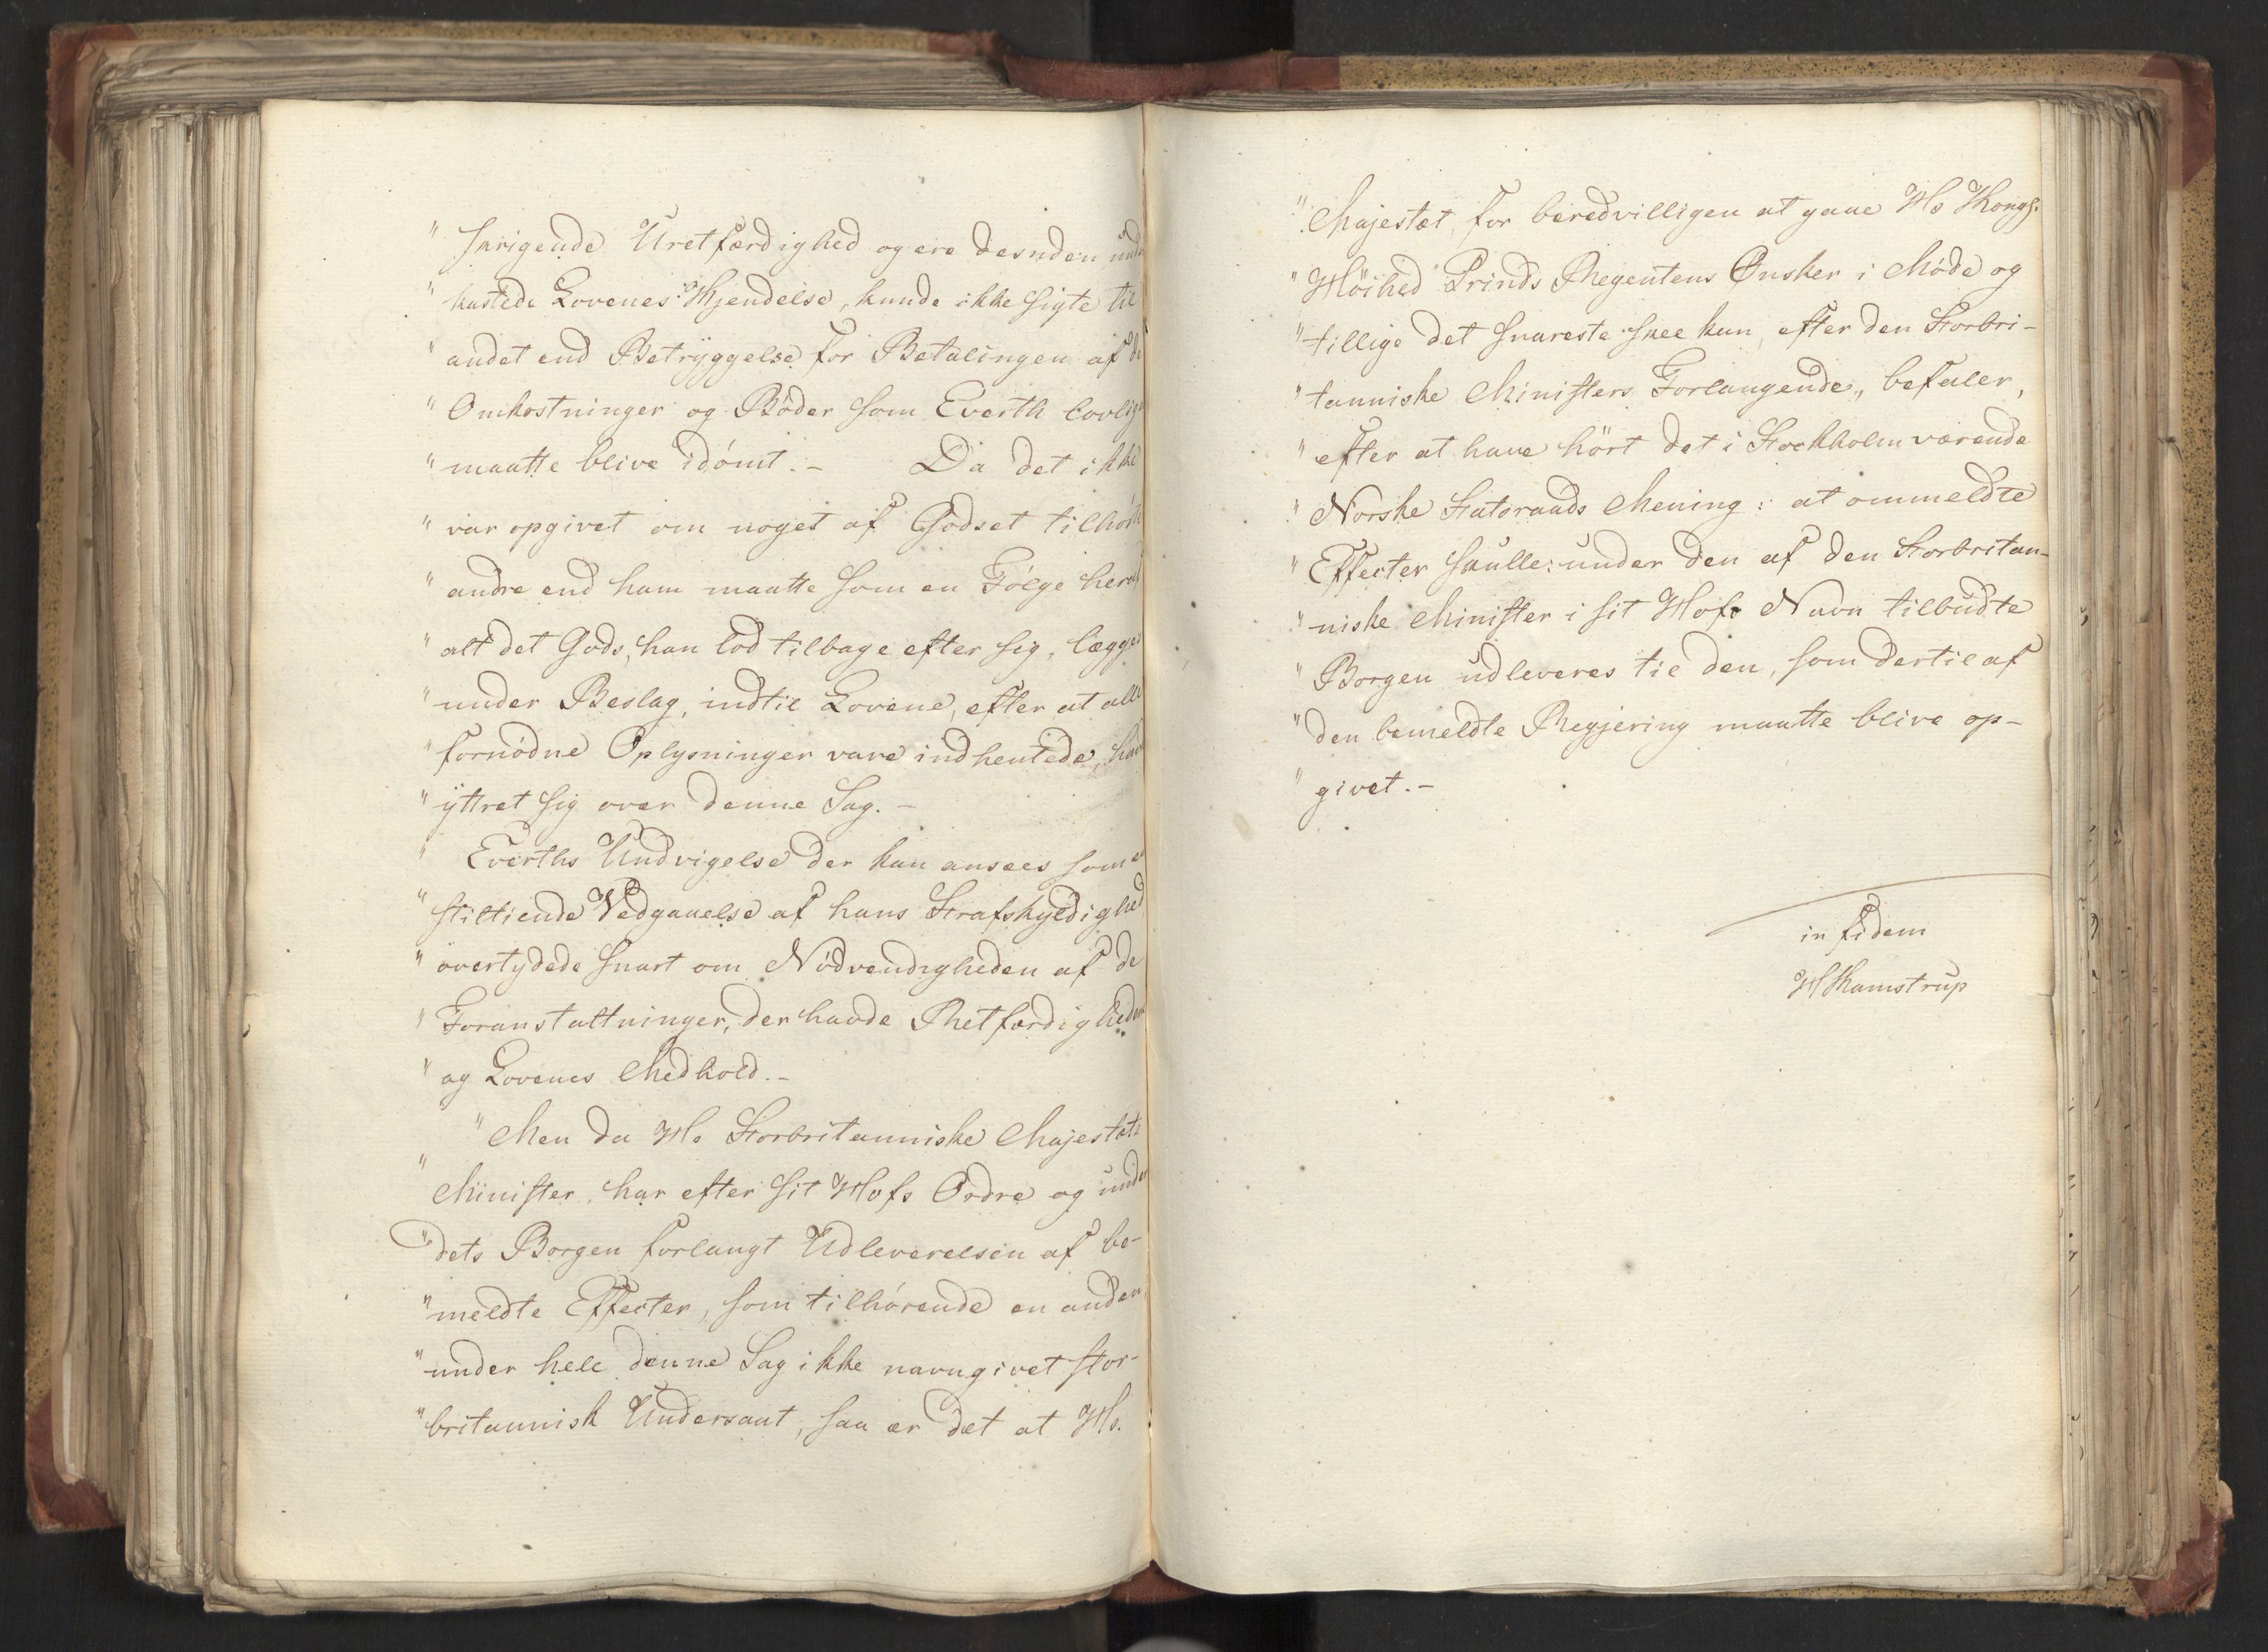 " skrigende Uretfærdighed og ere desuden und
" kastede Lovenes Kjendelse, kunde ikke sigte til
" andet end Betryggelse for Betalingen af de
" Omkostninger og Böder som Everth lovlig
" maatte blive idömt.- Da det ikke
" var opgivet om noget af Godset tilhörte
" andre end ham maatte som en Fölge heraf
" alt det Gods, han lod tilbage efter sig, lægges
" under Beslag, indtil Lovene, efter at alle
" fornödne Oplysninger vare indhentede, hav
" yttret sig over denne Sag.-
" Everths Undvigelse der kan ansees som en
" stiltiende Vedgaaelse af hans Strafskyldighed
" overtydede snart om Nödvendigheden af de
" Foranstaltninger, der havde Retfærdigheden
" og Lovenes Medhold.-
" Men da Hs Storbritanniske Majestæts
" Minister har efter sit Hofs Ordre og under
" dets Borgen forlangt Udleverelsen af be-
" meldte Effecter, som tilhörende en anden,
" under hele denne Sag ikke navngivet stor-
" britannisk Undersaat, saa er det at Hs.
" Majestæt, for beredvilligen at gaae Hs Kongl.
" Höihed Prinds Regentens Önsker i Möde og
" tillige det snareste skee kan, efter den Storbri-
" tanniske Ministers Forlangende, befaler,
" efter at have hört det i Stockholm værende
" Norske Statsraads Mening: at ommeldte
" Effecter skulle under den af den Storbritan-
" niske Minister i sit Hofs Navn tilbudte
" Borgen udleveres til den, som dertil af
" den bemeldte Regjering maatte blive op-
" givet.-
in fidem
H Kamstrup